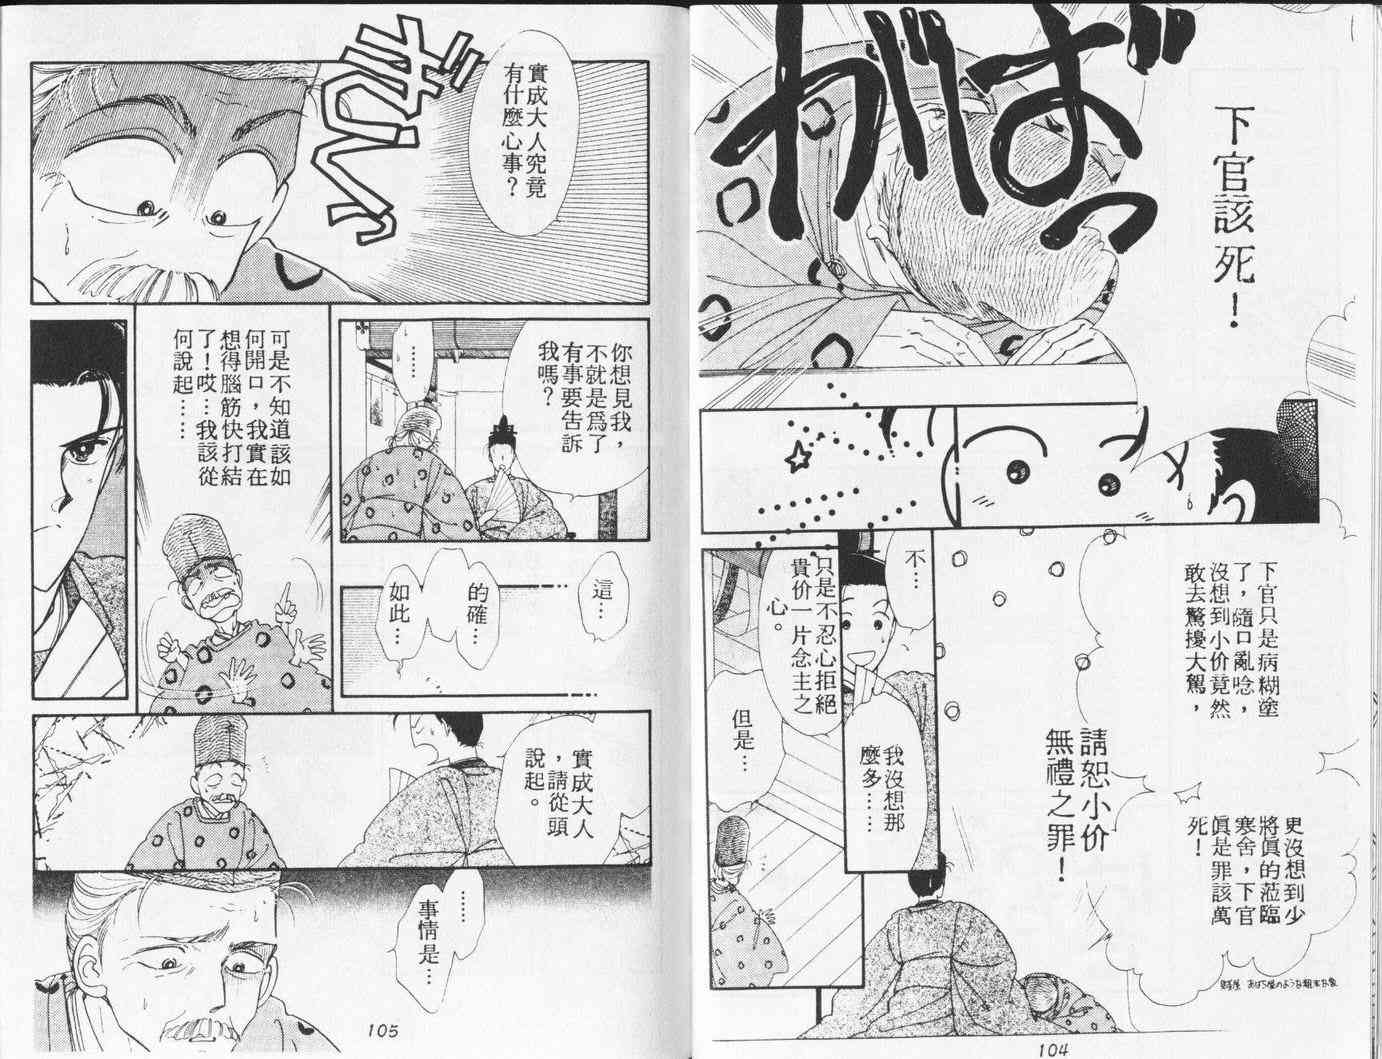 がばっ
下官該死！
下官只是病糊塗
了，隨口亂唸，
沒想到小价竟然
敢去驚擾大駕，
更沒想到少
將真的蒞臨
寒舍，下官
真是罪該萬
死！
請恕小价
無禮之罪！
不…
只是不忍心拒絕
貴价一片念主之
心。
我沒想那
麼多……
但是…
104
實成大人究竟
有什麼心事？
ぎくっ
你想見我，
不就是爲了
有事要告訴
我嗎？
……
這…
的確…
如此…
可是不知道該如
何開口，我實在
想得腦筋快打結
了！哎…我該從
何說起……
實成大人
，請從頭
說起。
……
事情是…
105